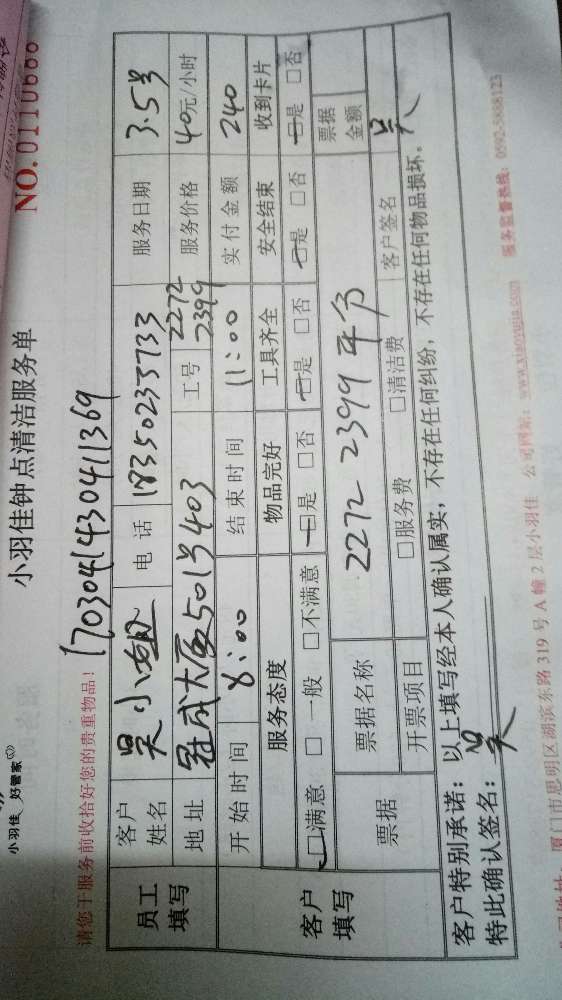 小羽佳 好管家
小羽佳钟点清洁服务单
NO.0110686
请您于服务前收拾好您的贵重物品！
1703041430411369
员工填写
客户姓名 吴小姐 电话 18350233733 服务日期 3.5号
地址 冠成大厦501号403 工号 2272 2399 服务价格 40元/小时
客户填写
开始时间 8:00 结束时间 11:00 实付金额 240
服务态度 物品完好 工具齐全 安全结束 收到卡片
□满意 □一般 □不满意 □是 □否 □是 □否 □是 □否 □是 □否
票据 票据名称 2272 2399 平分 票据金额
开票项目 □服务费 □清洁费 客户签名 吴
客户特别承诺：以上填写经本人确认属实，不存在任何纠纷，不存在任何物品损坏。
特此确认签名：吴
厦门市思明区湖滨东路319号A幢2层小羽佳 公司网站：www.xiaoyujia.com 服务监督热线：0592-5688123